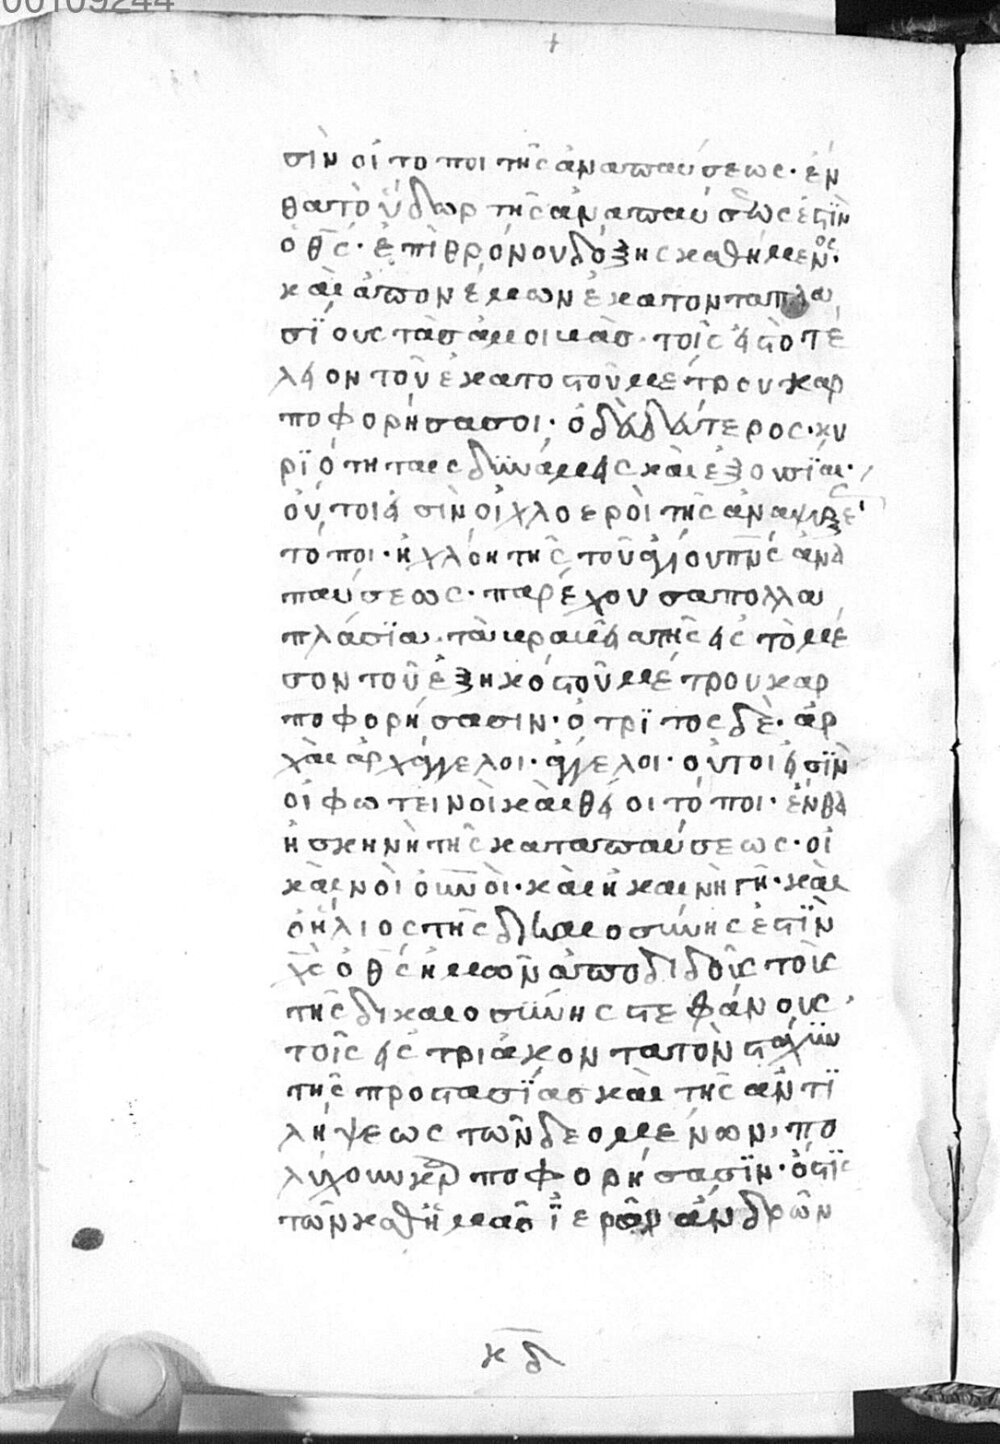 00109244
+
σὶν οἱ τόποι τῆς ἀναπαύσεως· ἐν
θα τὸ ὕδωρ τῆς ἀναπαύσεως ἐστὶν
ὁ θς· ἐπὶ θρόνου δόξης καθήμενος·
καὶ ἀπονέμων ἑκατονταπλα
σΐους τὰς ἀμοιβὰς· τοῖς εἰς τὸ τέ
λειον τοῦ ἑκατοστοῦ μέτρου καρ
ποφορήσασι· ὁ δὲ δεύτερος· κυ
ρϊότητες δυνάμεις καὶ ἐξουσΐαι·
οὗτοι εἰσὶν οἱ χλοεροὶ τῆς ἀναψύξε
τόποι· ἡ χλόη τῆς τοῦ ἁγίου πνς ἀνα
παύσεως· παρέχουσα πολλα
πλάσϊα τὰ
σον τοῦ ἑξηκοστοῦ μέτρου καρ
ποφορήσασιν· ὁ τρΐτος δὲ· ἀρ
χαὶ ἀρχάγγελοι· ἄγγελοι· οὗτοι εἰσϊν
οἱ φωτεινοὶ καὶ θεῖοι τόποι· ἔνθα
ἡ σκηνὴ τῆς καταπαύσεως· οἱ
καινοὶ οὐνοὶ· καὶ ἡ καινὴ γῆ· καὶ
ὁ ἥλιος τῆς δικαιοσύνης ἐστϊν
χς ὁ θς ἡμῶν ἀποδιδοὺς τοὺς
τῆς δικαιοσύνης στεφάνους·
τοῖς εἰς τριάκοντα τὸν στάχυν
τῆς προστασΐας καὶ τῆς ἀντϊ
λήψεως τῶν δεομένων, πο
λύχουν καρποφορήσασϊν· ὅστϊς
τῶν καθ' ἡμᾶς ἱερῶν ἀνδρῶν
κδ